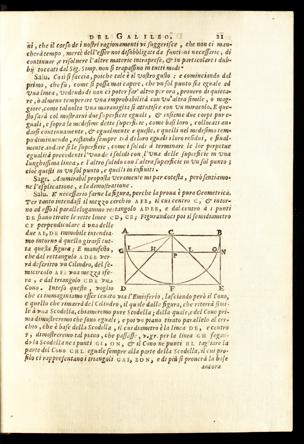 DEL GALILEO. 21
ni, che il corso de i nostri ragionamenti ne suggerisce, che non ci man-
cherà tempo, mercè dell'esser noi disobbligati da funzioni necessarie, di
continuar, e risolvere l'altre materie intraprese, & in particolare i dub-
bij toccati dal Sig. Simp. non si trapassino in tutti modi.
Salu. Così si faccia, poiche tale è il vostro gusto: e cominciando dal
primo, che fu, come si possa mai capire, che un sol punto sia eguale ad
una linea, vedendo di non ci poter far altro per ora, procurerò di quieta-
re, ò almeno temperare una improbabilità con un'altra simile, ò mag-
giore, come talvolta una maraviglia s'attutisce con un miracolo. E que-
sto sarà col mostrarvi due superficie eguali, & insieme due corpi pur'e-
guali, e sopra le medesime dette superficie, come basi loro, collocati an-
darsi continuamente, & egualmente e queste, e quelli nel medesimo tem-
po diminuendo, restando sempre tra di loro eguali i loro residui, e final-
mente andare sì le superficie, come i solidi à terminare le lor perpetue
egualità precedenti l'uno de i solidi con l'una delle superficie in una
lunghissima linea, e l'altro solido con l'altra superficie in un sol punto;
cioè questi in un sol punto, e quelli in infiniti.
Sagr. Ammirabil proposta veramente mi par cotesta, però sentiamo-
ne l'esplicazione, e la demostrazione.
Salu. E necessario farne la figura, perche la prova è pura Geometrica.
Per tanto intendasi il mezzo cerchio AFB, il cui centro C, & intor-
no ad esso il parallelogrammo rettangolo ADEB, e dal centro à i punti
DE siano tirate le rette linee CD, CE; Figurandoci poi il semidiametro
CF perpendicolare à una delle
due AB, DE immobile intendia-
mo intorno à quello girarsi tut-
ta questa figura; È manifesto,
che dal rettangolo ADEB ver-
rà descritto un Cilindro, del se-
micircolo AFB una mezza sfe-
ra, e dal triangolo CDE un
Cono. Inteso questo, voglio
che ci immaginiamo esser levato via l'Emisferio, lasciando però il Cono,
e quello che rimarrà del Cilindro, il quale dalla figura, che riterrà simi-
le à una Scodella, chiameremo pure Scodella; della quale, e del Cono pri-
ma dimostreremo che sono eguali; e poi un piano tirato parallelo al cer-
chio, che è base della Scodella, il cui diametro è la linea DE, e centro
F, dimostreremo tal piano, che passasse, v.gr. per la linea GN segar-
do la Scodella ne i punti GI, ON, & il Cono ne punti HL tagliare la
parte del Cono CHL eguale sempre alla parte della Scodella, il cui pro-
filo ci rappresentano i triangoli GAI, BON; e di più si proverà la base
ancora
A C B
G I H L O N
P
D F E